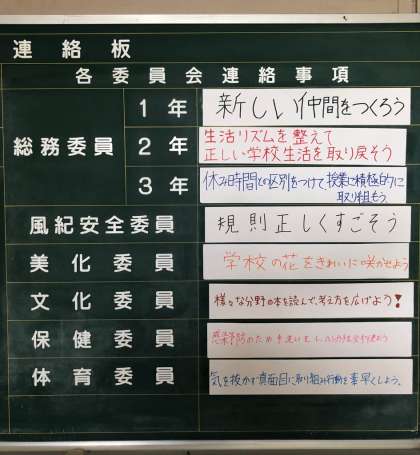 連絡板
各委員会連絡事項
総務委員
1年
新しい仲間をつくろう
2年
生活リズムを整えて
正しい学校生活を取り戻そう
3年
休み時間との区別をつけて授業に積極的に
取り組もう
風紀安全委員
規則正しくすごそう
美化委員
学校の花をきれいに咲かせよう
文化委員
様々な分野の本を読んで、考え方を広げよう!
保健委員
感染予防のため手洗いをし、
体育委員
気を抜かず真面目に取り組み行動を素早くしよう。